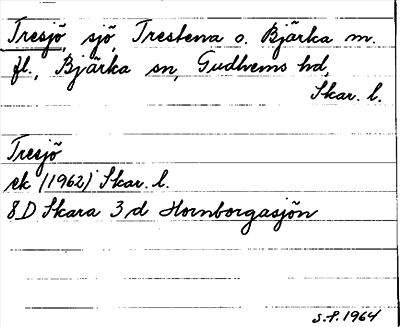 Tresjö, sjö, Trestena o. Bjärka m.
fl., Bjärka sn, Gudhems hd,
Skar. l.
Tresjö
ek (1962) Skar. l.
8D Skara 3d Hornborgasjön
S.F. 1964